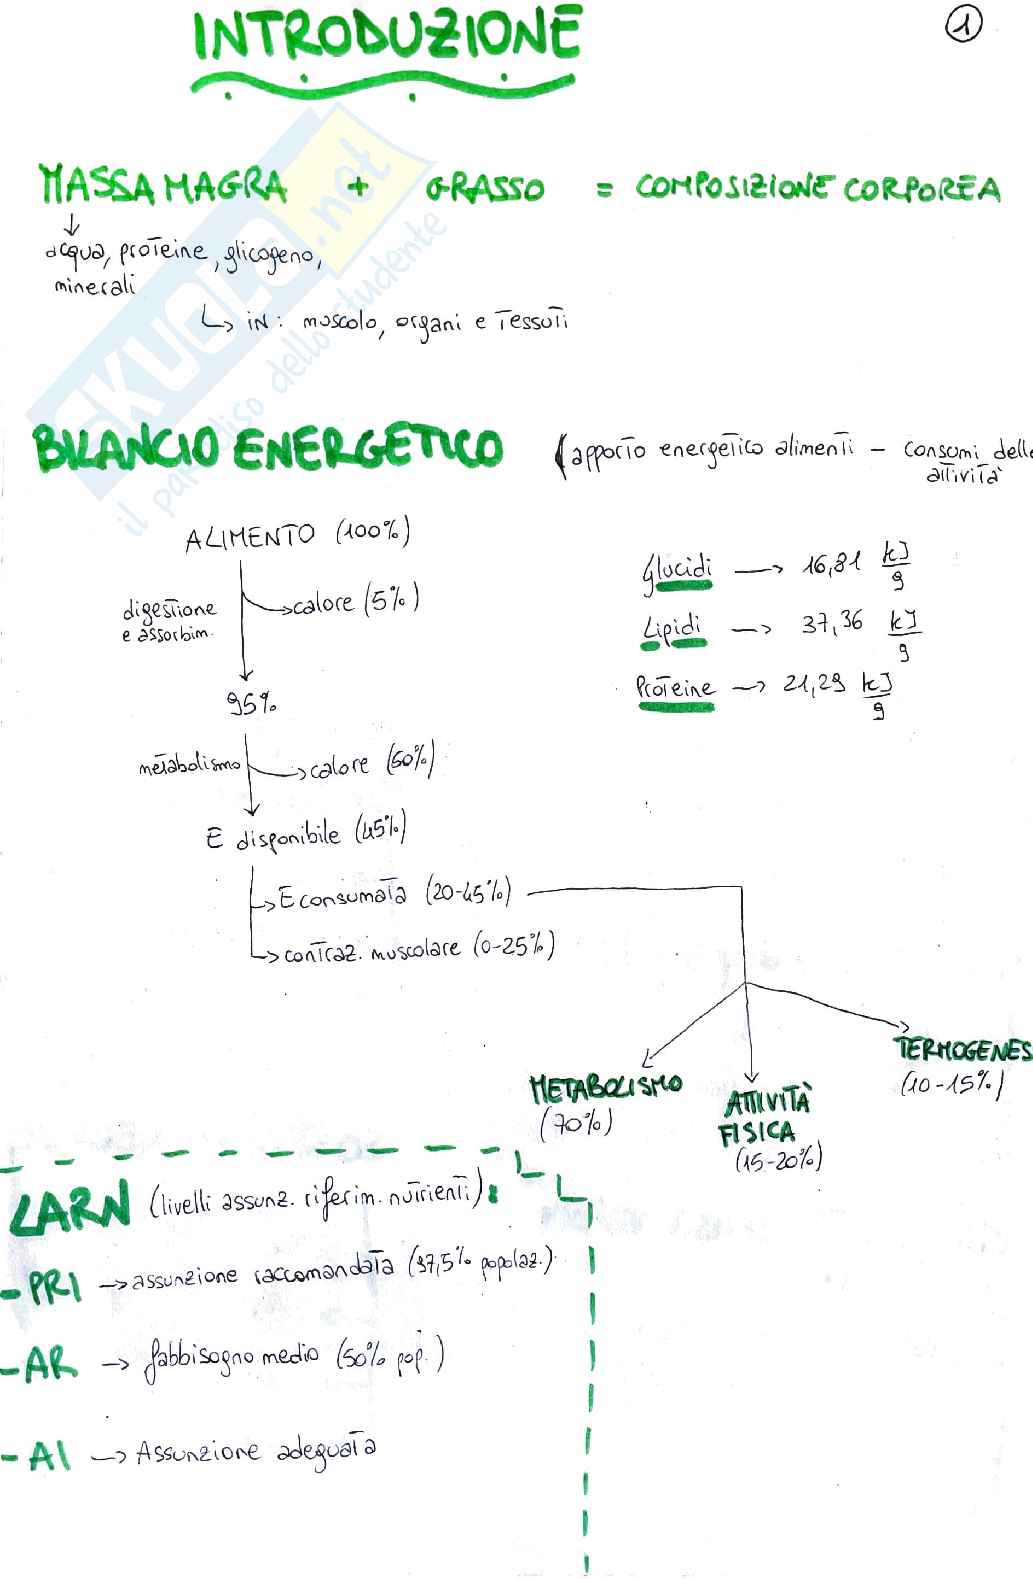 INTRODUZIONE
1
MASSA MAGRA + GRASSO = COMPOSIZIONE CORPOREA
acqua, proteine, glicogeno,
minerali
↳ in: muscolo, organi e tessuti
SKUOLA.net
il paradiso dello studente
BILANCIO ENERGETICO (apporto energetico alimenti – consumi delle
attività
ALIMENTO (100%)
digestione
e assorbim.
→ calore (5%)
95%
metabolismo
→ calore (50%)
E disponibile (45%)
→ E consumata (20-45%)
→ contraz. muscolare (0-25%)
Glucidi → 16,81 kJ/g
Lipidi → 37,36 kJ/g
Proteine → 21,29 kJ/g
METABOLISMO
(70%)
ATTIVITÀ
FISICA
(15-20%)
TERMOGENES
(10-15%)
LARN (livelli assunz. riferim. nutrienti):
- PRI → assunzione raccomandata (97,5% popolaz.)
- AR → fabbisogno medio (50% pop.)
- AI → Assunzione adeguata